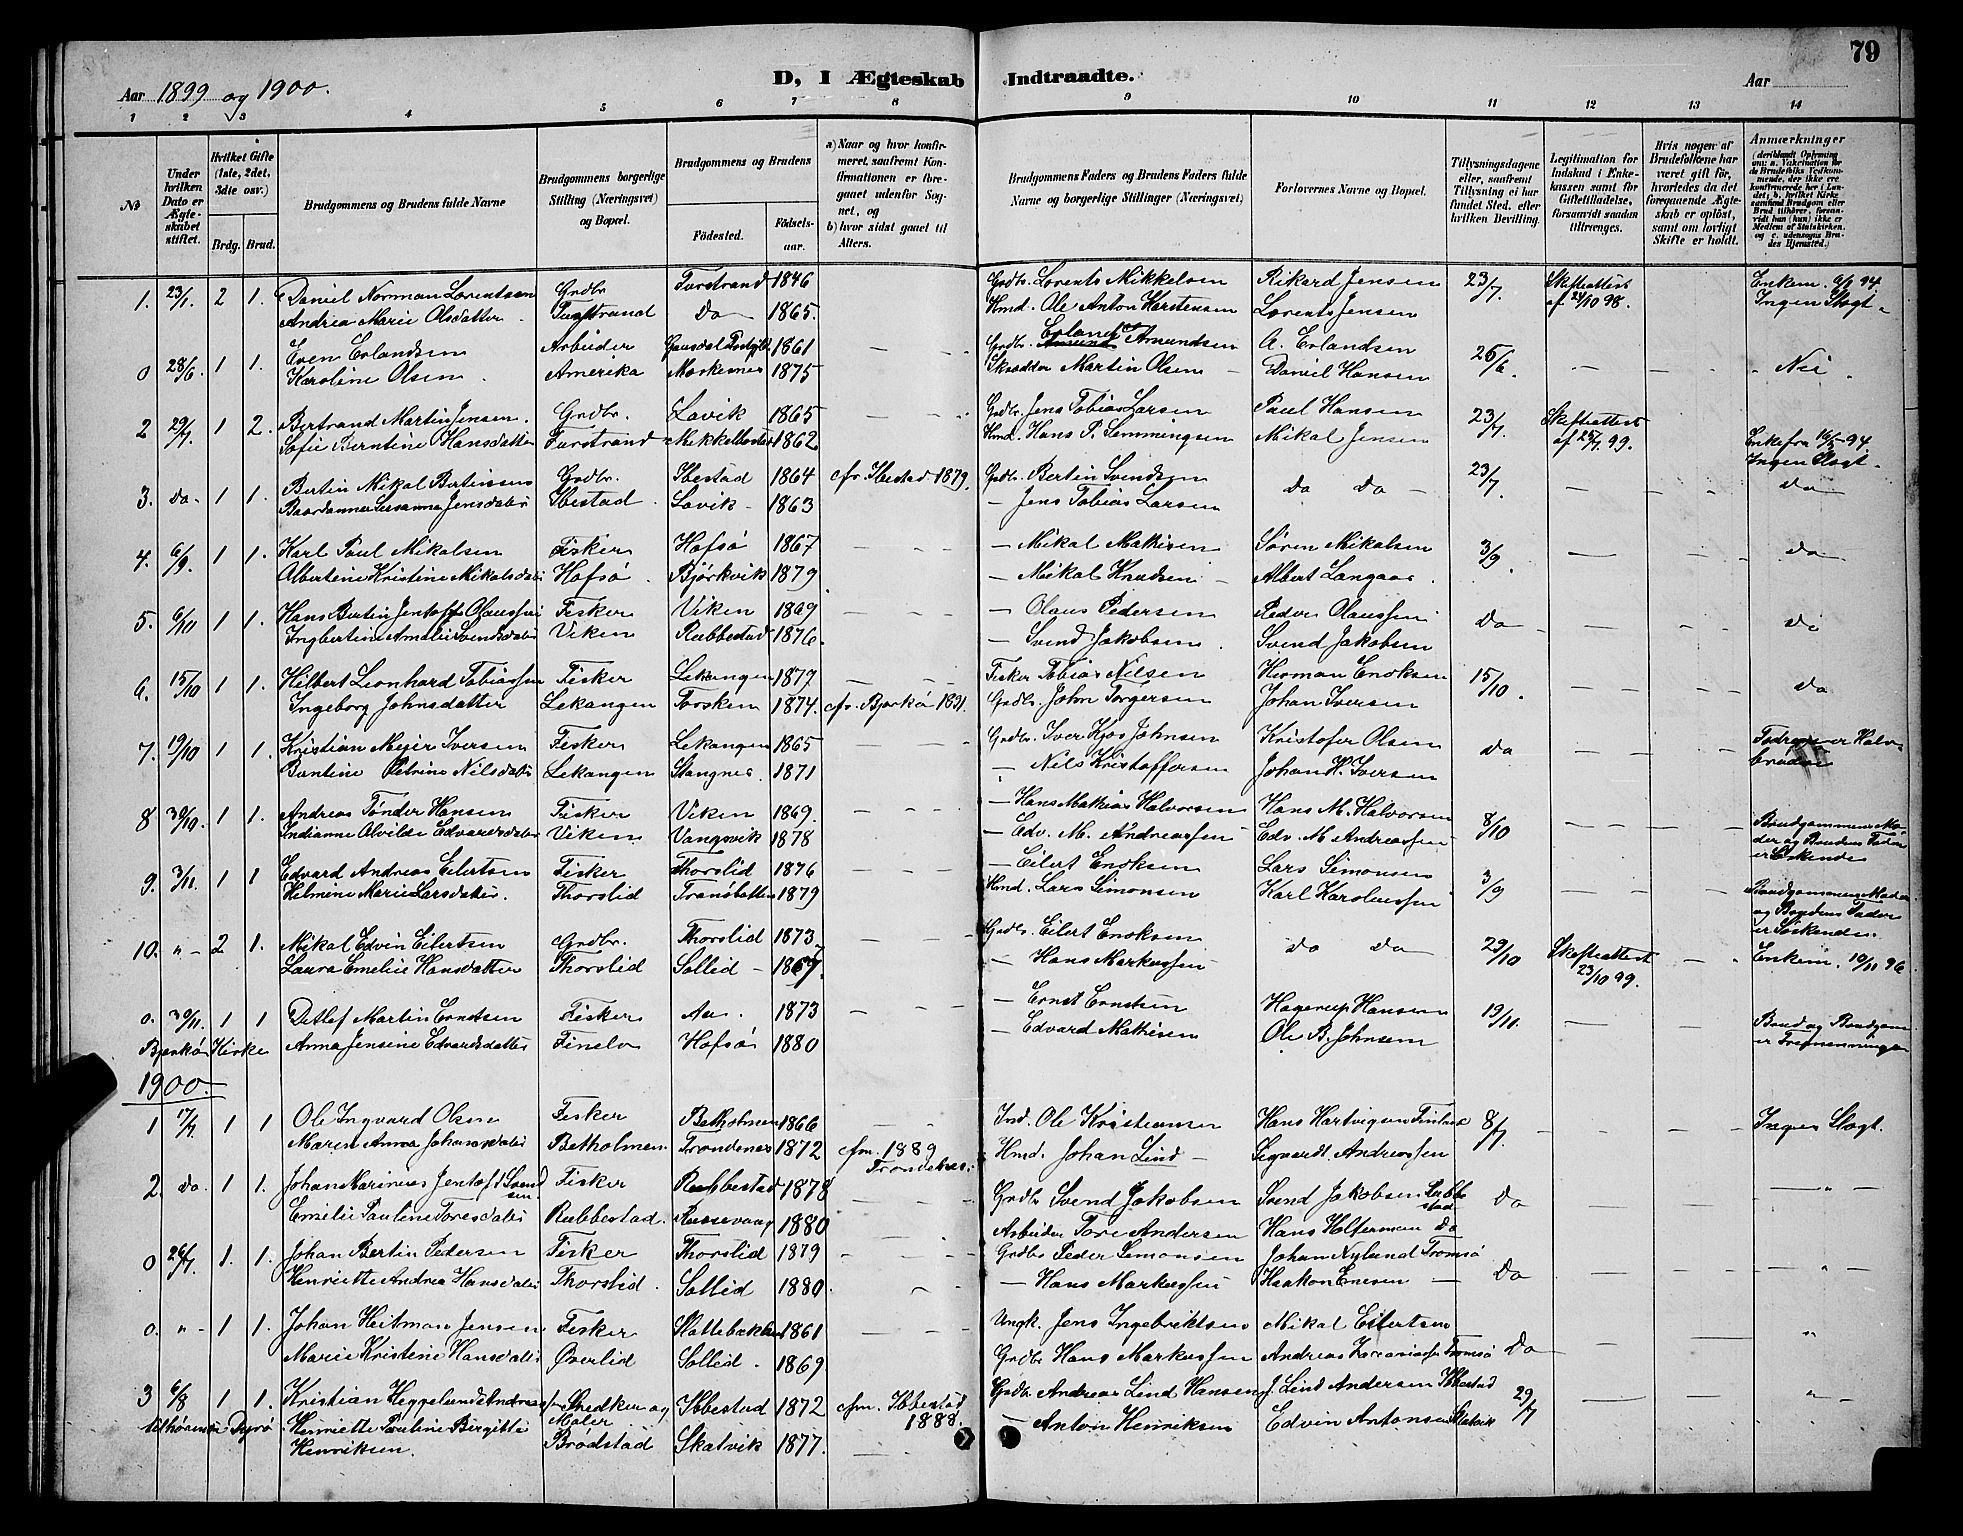 79
D, I Ægteskab Indtraadte.
Aar 1899 og 1900.
Aar
1 2 3 4 5 6 7 8 9 10 11 12 13 14
No
Under hvilken Dato er Ægteskabet stiftet.
Hvilket Gifte (1ste, 2det, 3die osv.)
Brdg. Brud.
Brudgommens og Brudens fulde Navne
Brudgommens borgerlige Stilling (Næringsvei) og Bopæl.
Brudgommens og Brudens
Födested.
Födselsaar.
a) Naar og hvor konfirmeret, saafremt Konfirmationen er foregaaet udenfor Sognet, og
b) hvor sidst gaaet til Alters.
Brudgommens Faders og Brudens Faders fulde Navne og borgerlige Stillinger (Næringsvei)
Forlovernes Navne og Bopæl.
Tillysningsdagene eller, saafremt Tillysning ei har fundet Sted, efter hvilken Bevilling.
Legitimation for Indskud i Enkekassen samt for Giftetilladelse, forsaavidt saadan tiltrænges.
Hvis nogen af Brudefolkene har været gift för, hvorledes da det foregaaende Ægteskab er oplöst, samt om lovligt Skifte er holdt.
Anmærkninger
1. 23/1. 2 1. Daniel Norman Lorentsen Grdbr. Furstrand 1846 Grdbr. Lorents Mikkelsen Rikerd Jensen 23/7 Skifteattest Enkem. 6/9 94
Andrea Marie Olsdatter Furstrand Do 1865. Hmd. Ole Anton Karstensen Lorents Jensen af 24/10 98. Ingen Slægt
0 28/6. 1 1. Even Erlandsen Arbeider Gausdal 1861 Grdbr. Erland Amundsen A. Erlandsen 25/6. Nei
Karoline Olsen Amerika 1875 Skrædder Martin Olsen Daniel Hansen
2 29/7. 1 2. Bertrand Martin Jensen. Grdbr. Lavik 1865 Grdbr. Jens Tobias Larsen Paul Hansen 23/7 Skifteattest
Sofie Berntine Hansdatter Furstrand 1862 Hmd. Hans P. Lemmingsen Mikal Jensen af 25/7 99. Enke fra 16/5 94
Ingen Slægt
3. do 1 1. Bertin Mikal Bertinsen Grdbr. Ibestad 1864 cfr. Ibestad 1879. Grdbr. Bertin Svendsen do do 23/7 do
Jensdatter Ibestad. Lavik 1863 Jens Tobias Larsen
4. 6/9. 1 1. Karl Paul Mikalsen Fisker Hofsø 1867 Mikal Mathisen Søren Mikalsen 3/9 do
Albertine Kristine Mikalsdatter Hofsø. Bjørkvik 1879 Mikal Knudsen Albert Langaas.
5. 6/10 1 1. Hans Bertin Jentoft Olaussen Fisker Viken 1869 Olaus Pedersen Peder Olaussen Do do
Ingbertine Amalie Svendsdatter Viken Rubbestad 1876. Svend Jakobsen Svend Jakobsen
6. 15/10 1 1. Hilbert Leonhard Tobiassen Fisker Lekangen 1877 Fisker Tobias Nilsen Herman Enoksen 15/10. do
Ingeborg Johnsdatter Lekangen Torsken 1874. cfr. Bjarkø Grdbr. John Torgersen Johan Iversen
7. 19/10 1 1. Kristian Meier Iversen Fisker Lekangen 1865 Grdbr. Iver Kjøs Johnsen Kristofer Olsen Do
Bentine Petrine Nilsdatter Lekangen Stangnes. 1871 Nils Kristoffersen Johan H. Iversen
8 30/10. 1 1. Andreas Tønder Hansen Fisker Viken 1869. Hans Mathias Halvorsen Hans M. Halvorsen 8/10 Brudgommens Moder og Brudens Fader
Indianne Alvilde Edvardsdatter Viken Vangsvik 1878 Edv. M. Andreassen Edv. M Andreassen er Søskende
9. 3/11. 1 1 Edvard Andreas Eilertsen Fisker Thorslid 1876 Eilert Enoksen Lars Simonsen 3/9 Brudgommens Moder og Brudens Fader
Helmine Marie Larsdatter. Thorslid 1879 Hmd. Lars Simonsen Karl Karolussen er Søskende.
10. " 2 1. Mikal Edvin Eilertsen Grdbr. Thorslid 1873 Grdbr. Eilert Enoksen do do 29/10 Skifteattest Enkem. 10/11 96
Laura Emelie Hansdatter Thorslid Sollid 1867. Hans Markussen 23/10 99.
0. 30/11. 1 1 Detlef Martin Ernstsen Fisker Aa. 1873 Ernst Ernstsen Hagerup Hansen 19/11. Brud og Brudgom
Bjarkø Kirke Anna Jensine Edvardsdatter Finelv Hofsø 1880 Edvard Mathisen Ole B. Johnsen er Tremenninger
1900.
1 17/7. 1 1 Ole Ingvard Olsen Fisker Betholmen 1866 Ind. Ole Kristiansen Hans Hartvigsen 8/7. Ingen Slægt.
Maren Anna Johansdatter Betholmen Trondenes 1872 cfm. 1889 Trondenes. Hmd. Johan Lind Sigvardt Andreassen
2. Do. 1 1. Johan Marinius Jentoft Svendsen Fisker Rubbestad 1878 Grdbr Svend Jakobsen Svend Jakobsen Rubbestad Do "
Emelie Pauline Toresdatter Rubbestad. 1880 Arbeider Tore Andersen Hans Holterman do
0 26/7. 1. 1. Johan Bertin Pedersen Fisker Thorslid 1879 Grdbr Peder Simonsen Johan Nylund Tromsø Do "
Henriette Andrea Hansdatter Thorslid. Sollid 1880 Hans Markussen Haakon Enesen
0. " 1 1. Johan Heitman Jensen Fisker Skattebakken 1861 Ungk. Jens Ingebriktsen Mikal Eilertsen Do "
Marie Kristine Hansdatter Øverlid Sollid. 1869 Grdbr Hans Markussen Andreas Zakariassen Tromsø
3 6/8 1 1. Kristian Heggelund Andreassen Snedker og Ibbestad 1872 cfm. Ibbestad 1888. Grdbr Andreas Lind Hansen J. Lind Andersen Ibbestad 29/7 "
tilhører Dyrø Henriette Pauline Birgitte Maler Anton Henriksen Edvin Antonsen Skatvik
Henriksen. Brødstad Skatvik 1877.